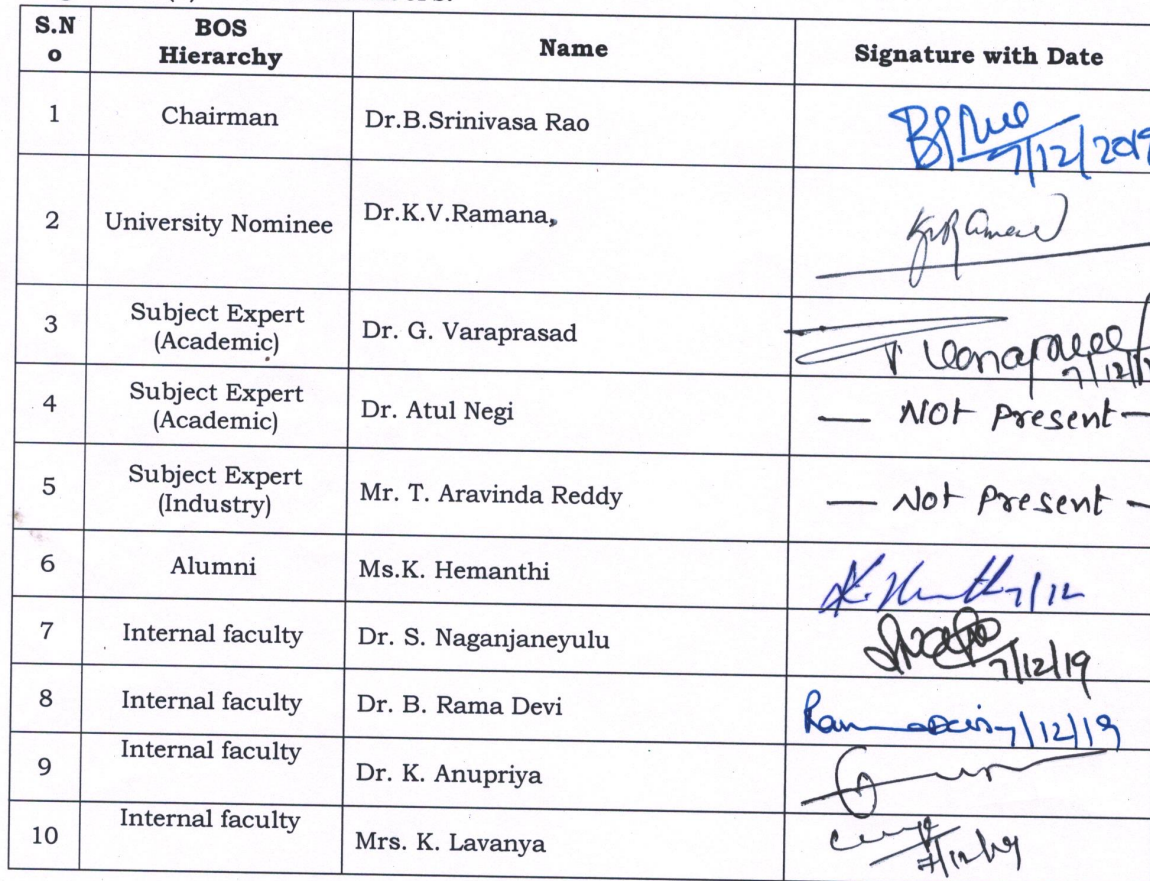 S.N
o
BOS
Hierarchy
Name
Signature with Date
1
Chairman
Dr.B.Srinivasa Rao
7/12/2019
2
University Nominee
Dr.K.V.Ramana,
3
Subject Expert
(Academic)
Dr. G. Varaprasad
7/12/
4
Subject Expert
(Academic)
Dr. Atul Negi
— NOT Present —
5
Subject Expert
(Industry)
Mr. T. Aravinda Reddy
— Not Present —
6
Alumni
Ms.K. Hemanthi
7/12
7
Internal faculty
Dr. S. Naganjaneyulu
7/12/19
8
Internal faculty
Dr. B. Rama Devi
7/12/19
9
Internal faculty
Dr. K. Anupriya
10
Internal faculty
Mrs. K. Lavanya
7/12/19